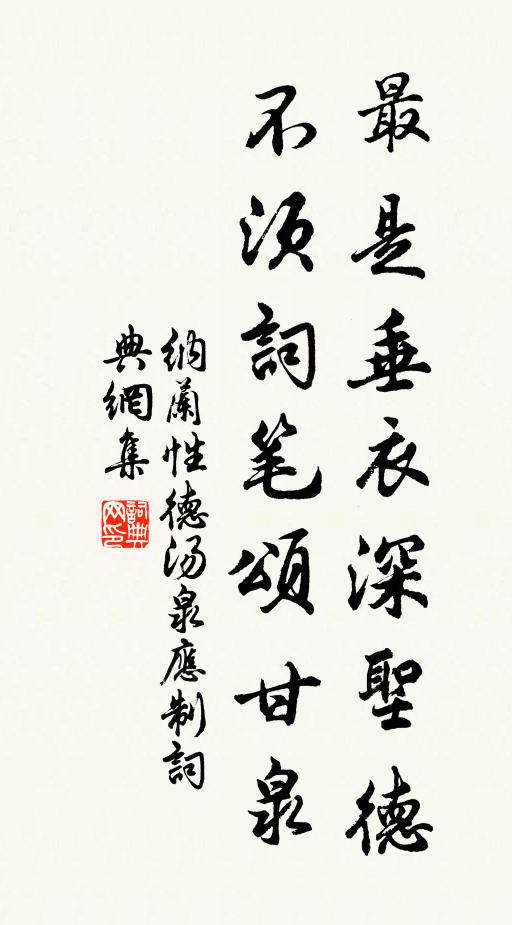 最是垂衣深聖德
不須詞笔頌甘泉
納蘭性德湯泉應制詞
典網集
詞典
网印